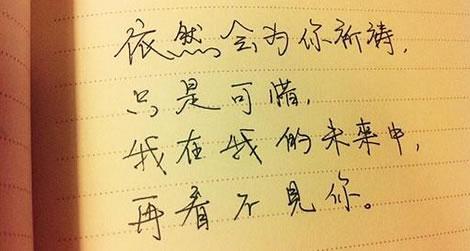 依然会为你祈祷，
只是可惜，
我在我的未来中，
再看不見你。